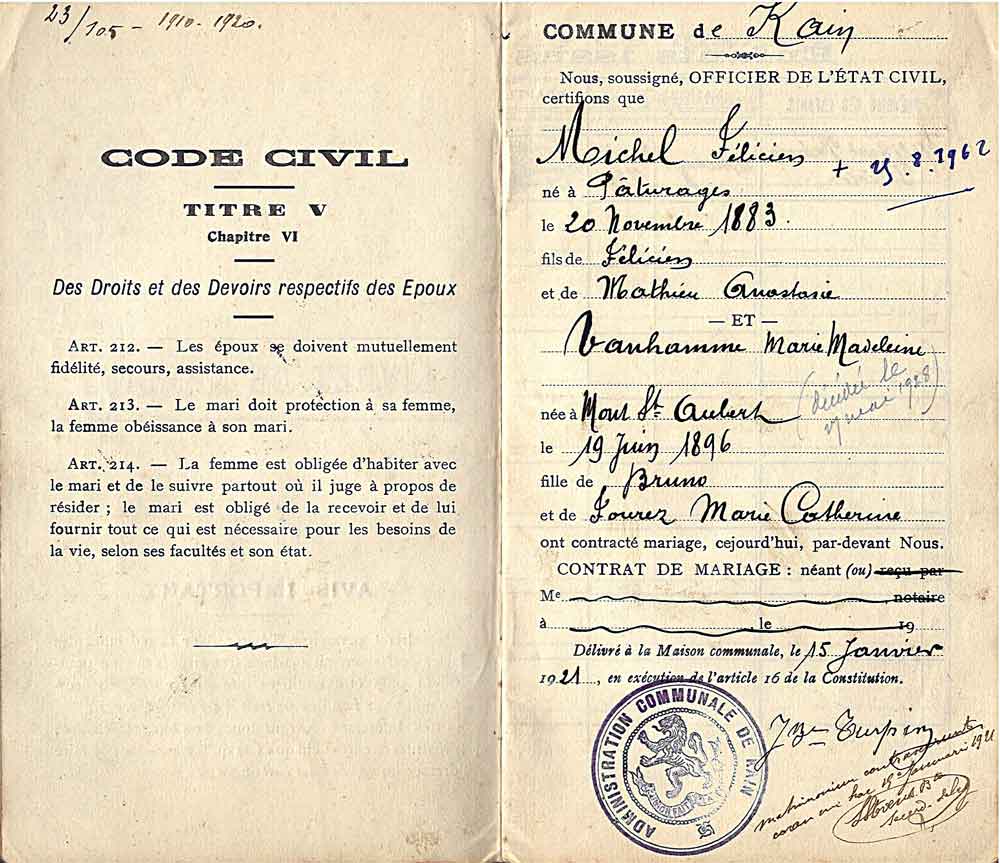 23/105 - 1910-1920.
CODE CIVIL
TITRE V
Chapitre VI
Des Droits et des Devoirs respectifs des Epoux
ART. 212. — Les époux se doivent mutuellement
fidélité, secours, assistance.
ART. 213. — Le mari doit protection à sa femme,
la femme obéissance à son mari.
ART. 214. — La femme est obligée d'habiter avec
le mari et de le suivre partout où il juge à propos de
résider ; le mari est obligé de la recevoir et de lui
fournir tout ce qui est nécessaire pour les besoins de
la vie, selon ses facultés et son état.
COMMUNE de Kain
Nous, soussigné, OFFICIER DE L'ÉTAT CIVIL,
certifions que
Michel Félicien + 25.8.1962
né à Pâturages
le 20 Novembre 1883.
fils de Félicien
et de Mathieu Anastasie
— ET —
Vanhamme Marie Madeleine
(décédée le
27 mai 1928)
née à Mont St Aubert
le 19 Juin 1896
fille de Bruno
et de Fourez Marie Catherine
ont contracté mariage, cejourd'hui, par-devant Nous.
CONTRAT DE MARIAGE : néant (ou) reçu par
Me notaire
à , le 19
Délivré à la Maison communale, le 15 Janvier
1921, en exécution de l'article 16 de la Constitution.
ADMINISTRATION COMMUNALE DE KAIN
L'UNION FAIT LA FORCE
Turpin
matrimonium
coram me hac 15 Januarii 1921